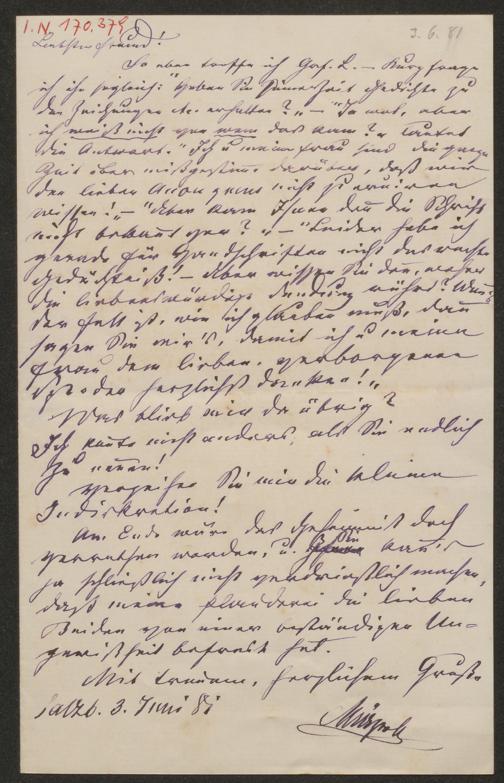 I.N. 170.379
3. 6. 81
Liebster Freund!
So eben treffe ich Graf. L. – Kurz frage
ich ihn sogleich: "Haben Sie seinerzeit Gedichte zu
den Zeichnungen etc. erhalten?" – "Ja wol, aber
ich weiß nicht von wem das kam?" lautet
die Antwort. "Ich u meine Frau sind die ganze
Zeit über mißgestimmt darüber, daß wir
den lieben Anonymus nicht zu eruiren
wissen! – "Aber kam Ihnen denn die Schrift
nicht bekannt vor?" – "Leider habe ich
gerade für Handschriften nicht das
Gedächtniß! – Aber wissen Sie denn, woher
die liebenswürdige Sendung rührt? Wenn's
der Fall ist, wie ich glauben muß, dann
sagen Sie mir's, damit ich u meine
Frau dem lieben, verborgenen
Spender herzlichst danken!"
Was blieb mir da übrig?
Ich konnte nicht anders, als Sie endlich
zu nennen!
Verzeihen Sie mir die kleine
Indiskretion!
Am Ende wäre das Geheimniß doch
verrathen worden, u. Ihnen kann's
ja schließlich nicht verdrießlich machen,
daß meine Plauderei die lieben
Beiden von einer beständigen Un=
gewißheit befreit hat.
Mit treuem, herzlichem Gruße
Salzb. 3. Juni 81